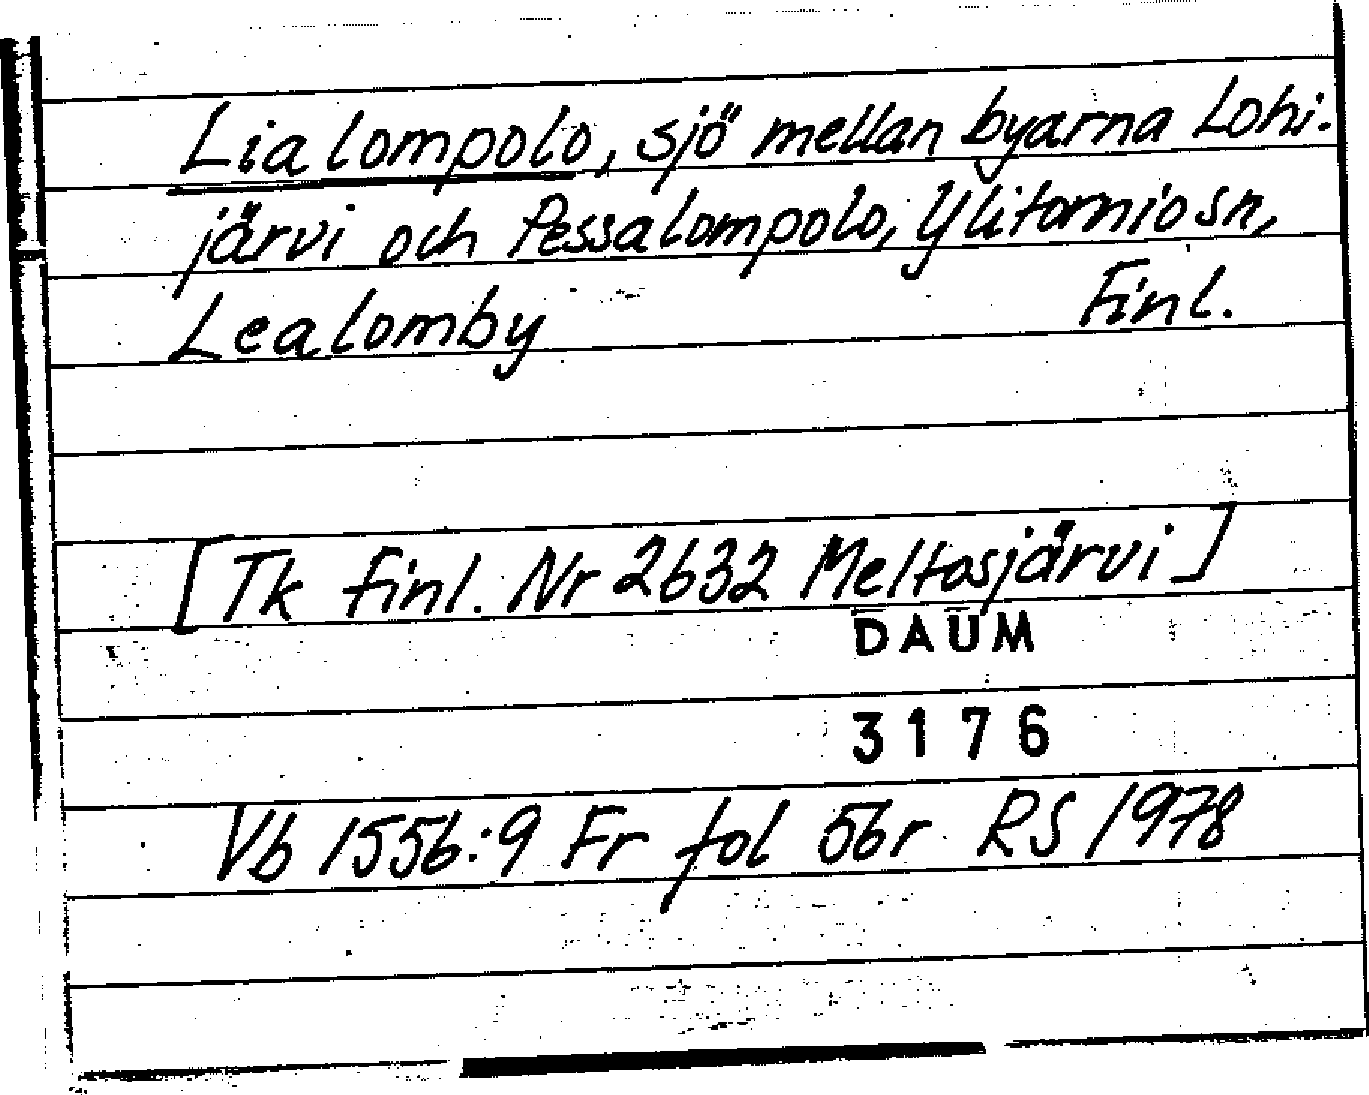 Lialompolo, sjö mellan byarna Lohi-
järvi och Pessalompolo, Ylitornio sn,
Lealomby Finl.
[Tk Finl. Nr 2632 Meltosjärvi]
DAUM
3176
Vb 1556:9 Fr fol 56r RS 1978